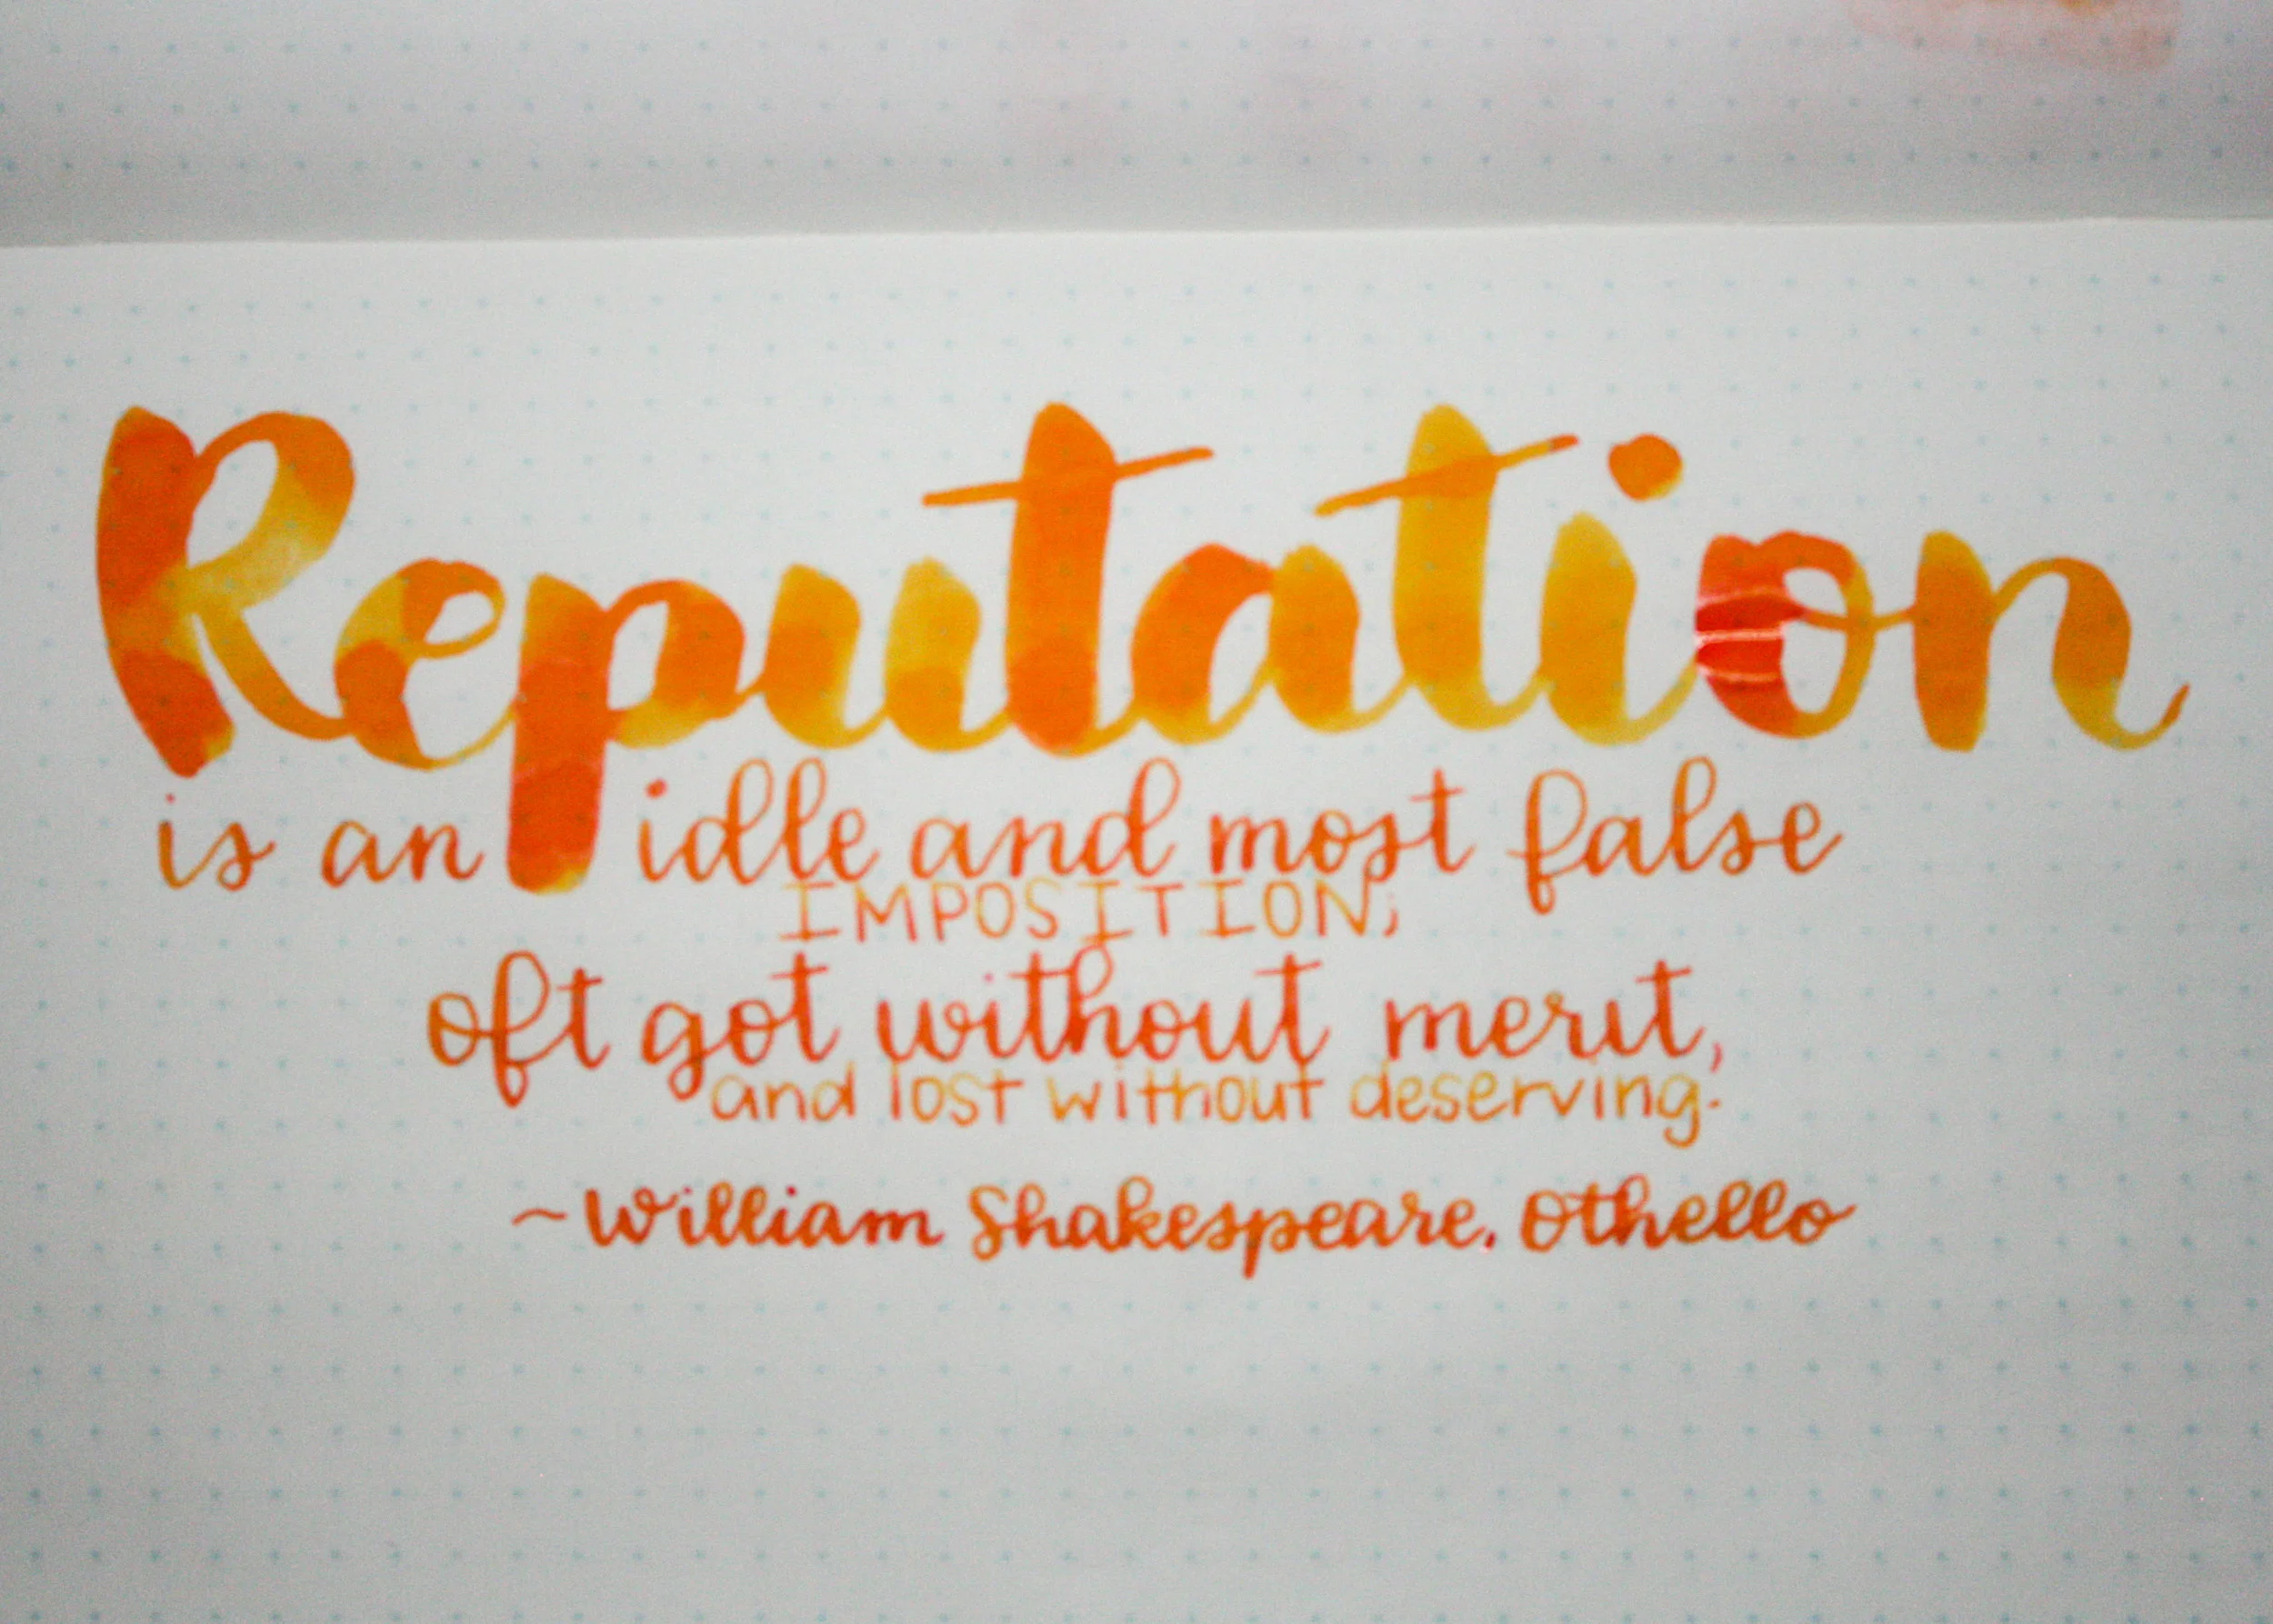 Reputation
is an idle and most false
IMPOSITION;
oft got without merit,
and lost without deserving.
~William Shakespeare, Othello